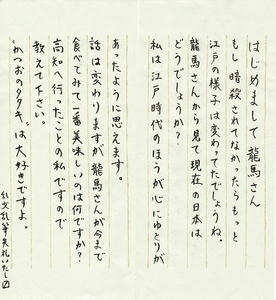 はじめまして龍馬さん
もし暗殺されてなかったらもっと
江戸の様子は変わってたでしょうね。
龍馬さんから見て現在の日本は
どうでしょうか？
私は江戸時代のほうが心にゆとりが
あったように思えます。
話は変わりますが龍馬さんが今まで
食べてみて一番美味しいのは何ですか？
高知へ行ったことの私ですので
教えて下さい。
"かつおのタタキ"は大好きですよ。
乱文乱筆失礼いたし〼